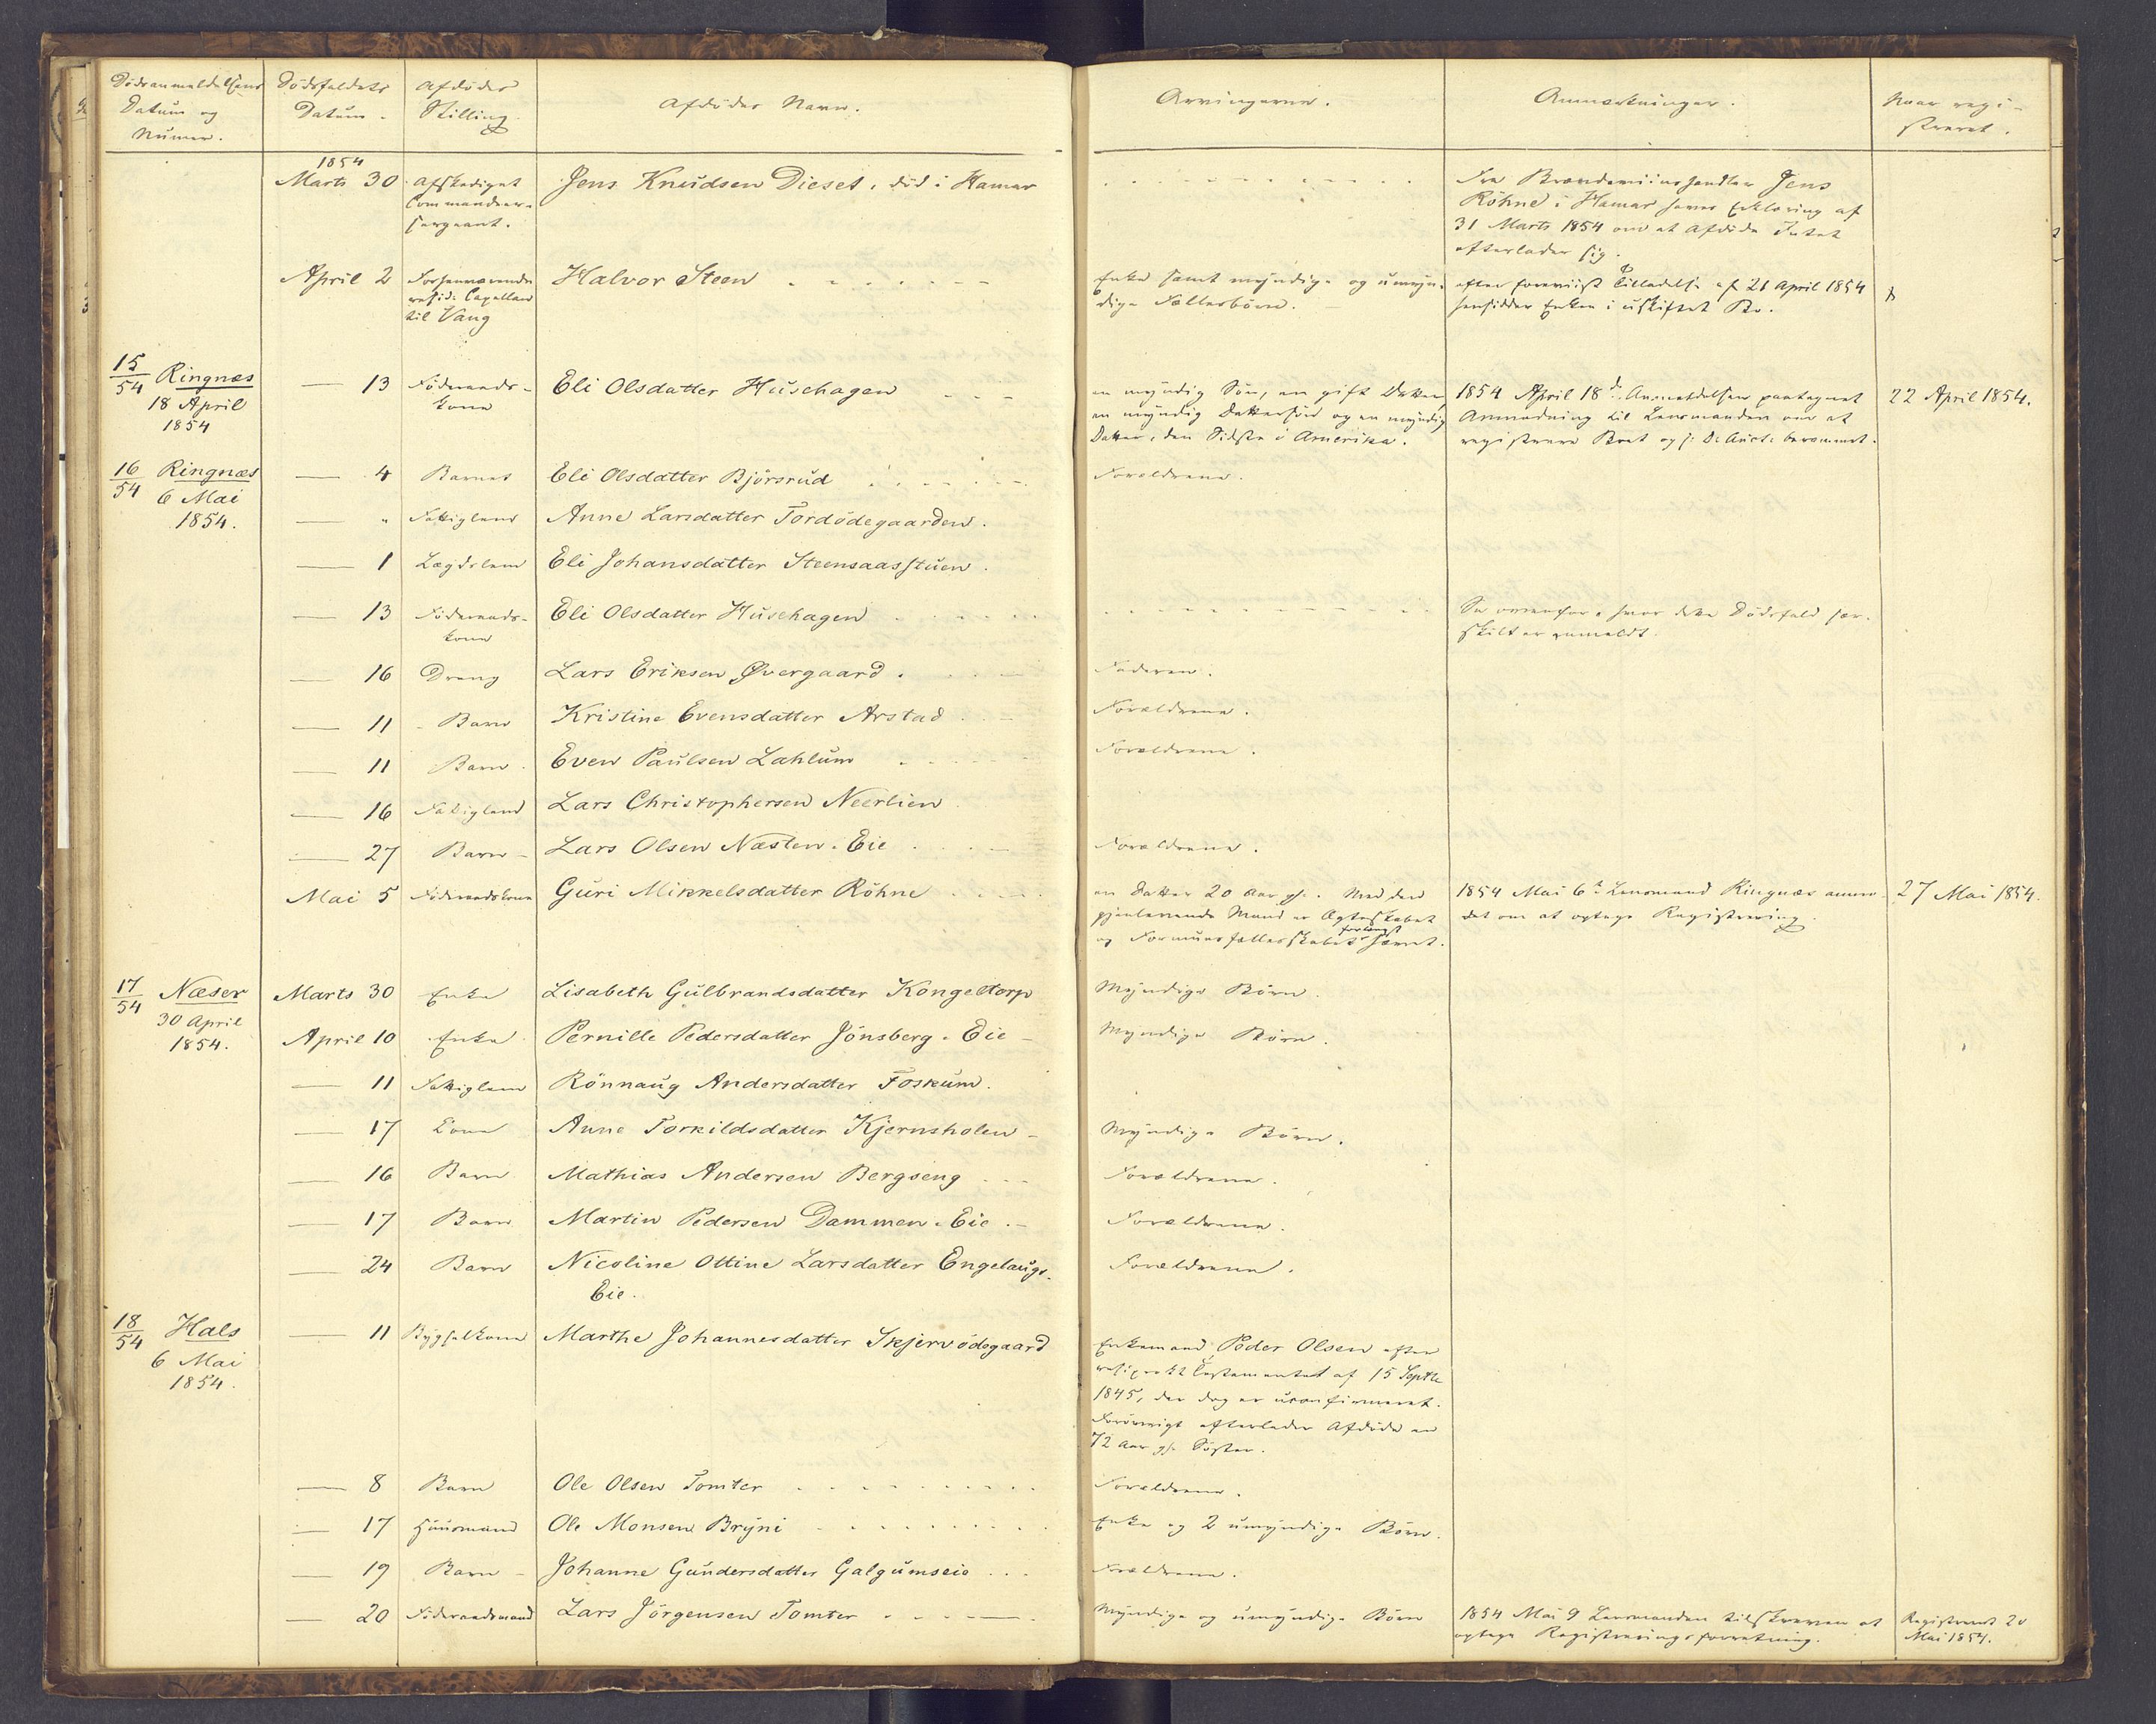 Dødsanmeldelsens
Datum og
Numer.
Dødsfaldets
Datum.
Afdødes
Stilling
Afdødes Navn.
Arvingerne.
Anmærkninger.
Naar regi-
streret.
1854
Marts 30 Afskediget Jens Knudsen Dieset, død i Hamar
Commandeer-
sergeant.
Fra Brændeviinshandler Jens
Röhne i Hamar haves Erklæring af
31 Marts 1854 om at Afdöde Intet
efterlader sig.
April 2 Forhenværende Halvor Steen
resid: Capellan
til Vang
Enke samt myndige og umyn-
dige Fællesbörn.
efter foreviist Tilladelse af 21 April 1854
hensidder Enken i uskiftet Bo.
15/54 Ringnæs
18 April
1854
— 13 Föderaads-
kone
Eli Olsdatter Husehagen
en myndig Sön, en gift Datter,
en myndig Dattersön og en myndig
Datter, den Sidste i Amerika.
1854 April 18de Anmeldelsen paategnet
Anmodning til Lensmanden om at
registrere Boet og
22 April 1854.
16/54 Ringnæs
6 Mai
1854.
— 4 Barnet Eli Olsdatter Björsrud Forældrene.
— " Fattiglem Anne Larsdatter Tordödegaarden.
— 1 Lægdslem Eli Johansdatter Steensaasstuen.
— 13 Föderaads-
kone
Eli Olsdatter Husehagen
Se ovenfor, hvor dette Dödsfald sær-
skilt er anmeldt.
— 16 Dreng Lars Eriksen Øvergaard. Faderen.
— 11 Barn Kristine Evensdatter Arstad Forældrene.
— 11 Barn Even Paulsen Lahlum Forældrene.
— 16 Fattiglem Lars Christophersen Neerlien
— 27 Barn Lars Olsen Næsten. Eie Forældrene.
Mai 5 Föderaadskone Guri Mikkelsdatter Röhne
en Datter 20 Aar gl. Med den
gjenlevende Mand er Ægteskabet
og Formuesfællesskabet forlængst hævet.
1854 Mai 6te Lensmand Ringnæs anmo-
det om at optage Registrering.
27 Mai 1854.
17/54 Næser
30 April
1854.
Marts 30 Enke Lisabeth Gulbrandsdatter Kongeltorp Myndige Börn.
April 10 Enke Pernille Pedersdatter Jönsberg. Eie Myndige Börn.
— 11 Fattiglem Rönnaug Andersdatter Foskum.
— 17 Kone Anne Torkildsdatter Kjernsholen Myndige Börn.
— 16 Barn Mathias Andersen Bergseng Forældrene.
— 17 Barn Martin Pedersen Dammen. Eie Forældrene.
— 24 Barn Nicoline Ottine Larsdatter Engelaugs-
Eie.
Forældrene.
18/54 Hals
6 Mai
1854.
— 11 Bygselkone Marthe Johannesdatter Skjervödegaard
Enkemand Peder Olsen efter
Testamentet af 15 Septbr
1845, der dog er uconfirmeret.
Forövrigt efterlader Afdöde en
72 Aar gl. Söster.
— 8 Barn Ole Olsen Tomter Forældrene.
— 17 Huusmand Ole Monsen Bryni Enke og 2 umyndige Börn.
— 19 Barn Johanne Gundersdatter Galgumseie Forældrene.
— 20 Föderaadsmand Lars Jörgensen Tomter Myndige og umyndige Börn
1854 Mai 9 Lensmanden tilskreven at
optage Registreringsforretning.
Registreret 20
Mai 1854.